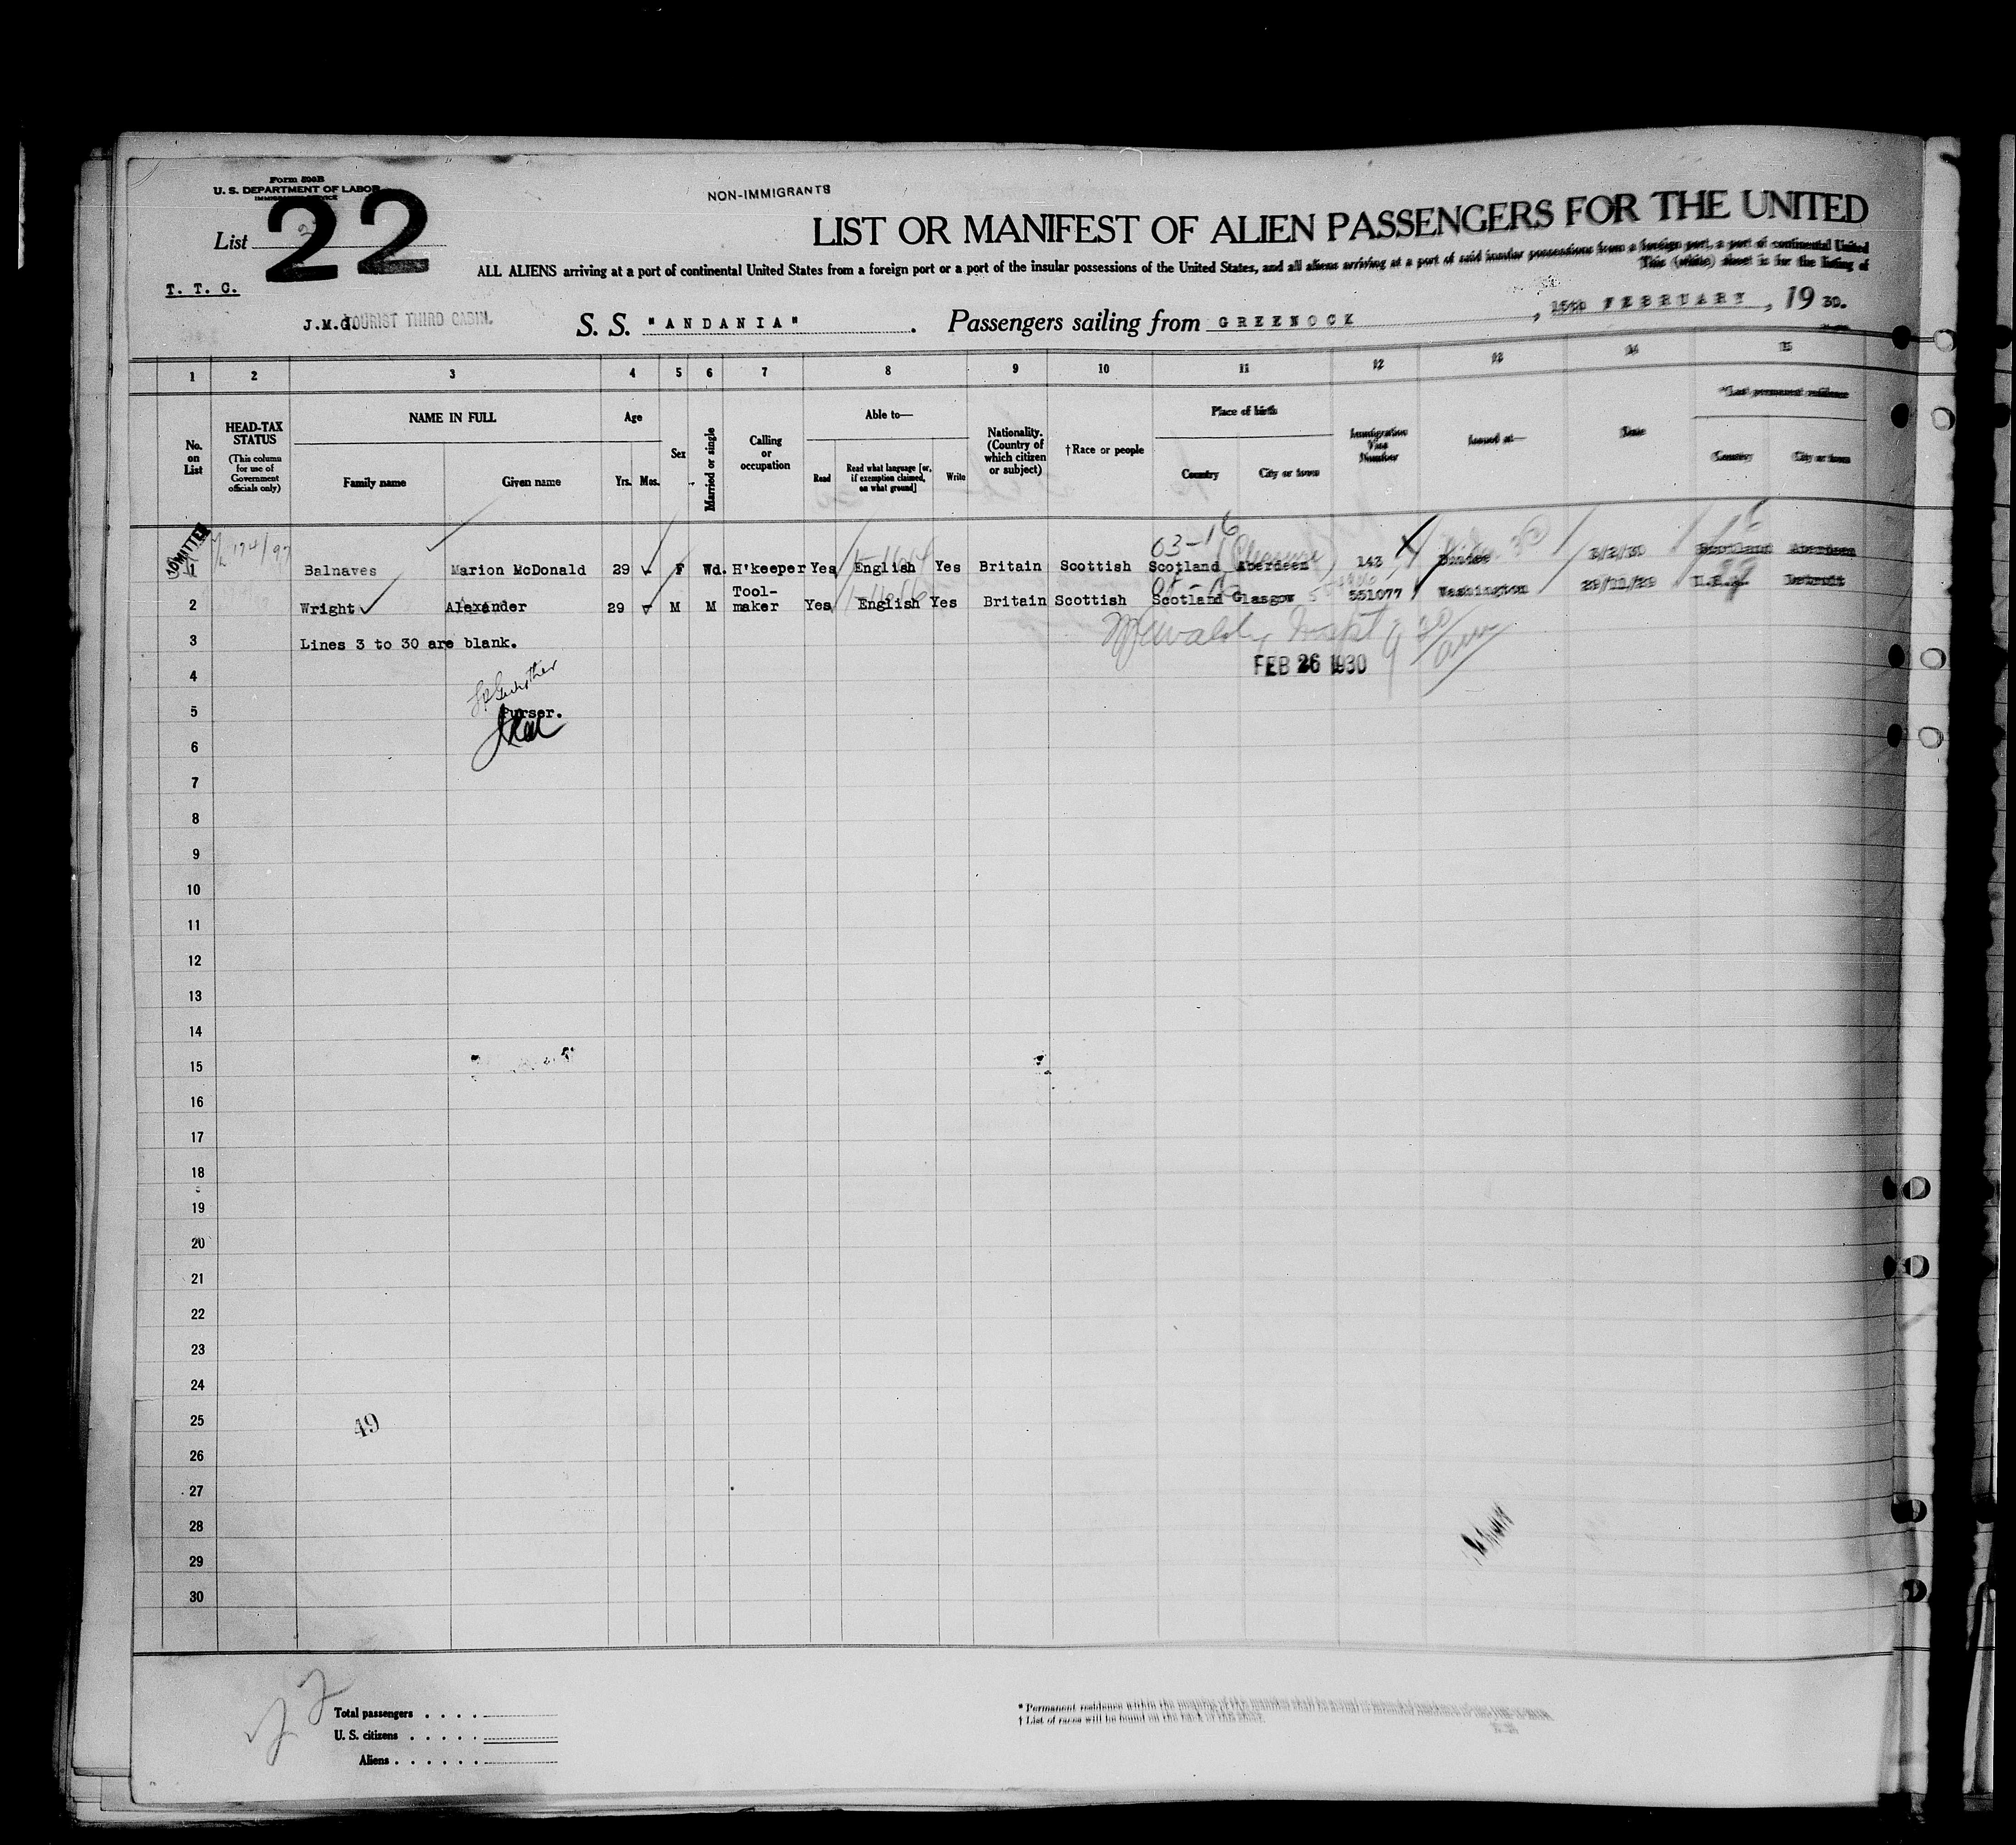 Form 500B
U. S. DEPARTMENT OF LABOR
IMMIGRATION SERVICE
NON-IMMIGRANTS
List 22
LIST OR MANIFEST OF ALIEN PASSENGERS FOR THE UNITED
ALL ALIENS arriving at a port of continental United States from a foreign port or a port of the insular possessions of the United States, and all aliens arriving at a port of said insular possessions from a foreign port, a port of continental United
This (white) sheet is for the listing of
T. T. C.
J.M.G. TOURIST THIRD CABIN.
S. S. "ANDANIA" . Passengers sailing from GREENOCK , 15th FEBRUARY , 19 30.
1 2 3 4 5 6 7 8 9 10 11 12 13 14 15
No. on List
HEAD-TAX STATUS
(This column for use of Government officials only)
NAME IN FULL
Family name Given name
Age
Yrs. Mos.
Sex
Married or single
Calling or occupation
Able to—
Read Read what language [or, if exemption claimed, on what ground] Write
Nationality. (Country of which citizen or subject)
†Race or people
Place of birth
Country City or town
Immigration Visa Number
Issued at—
Date
*Last permanent residence
Country City or town
ADMITTED
03-16
(Pleasure)
1 Balnaves Marion McDonald 29 F Wd. H'keeper Yes English Yes Britain Scottish Scotland Aberdeen 143 Dundee 3/2/30 Scotland Aberdeen
2 Wright Alexander 29 M M Tool-maker Yes English Yes Britain Scottish Scotland Glasgow 551077 Washington 29/11/29 U.S.A. Detroit
3 Lines 3 to 30 are blank.
4 FEB 26 1930
5 Purser.
6
7
8
9
10
11
12
13
14
15
16
17
18
19
20
21
22
23
24
25 49
26
27
28
29
30
Total passengers
U. S. citizens
Aliens
† List of races will be found on the back of this sheet.